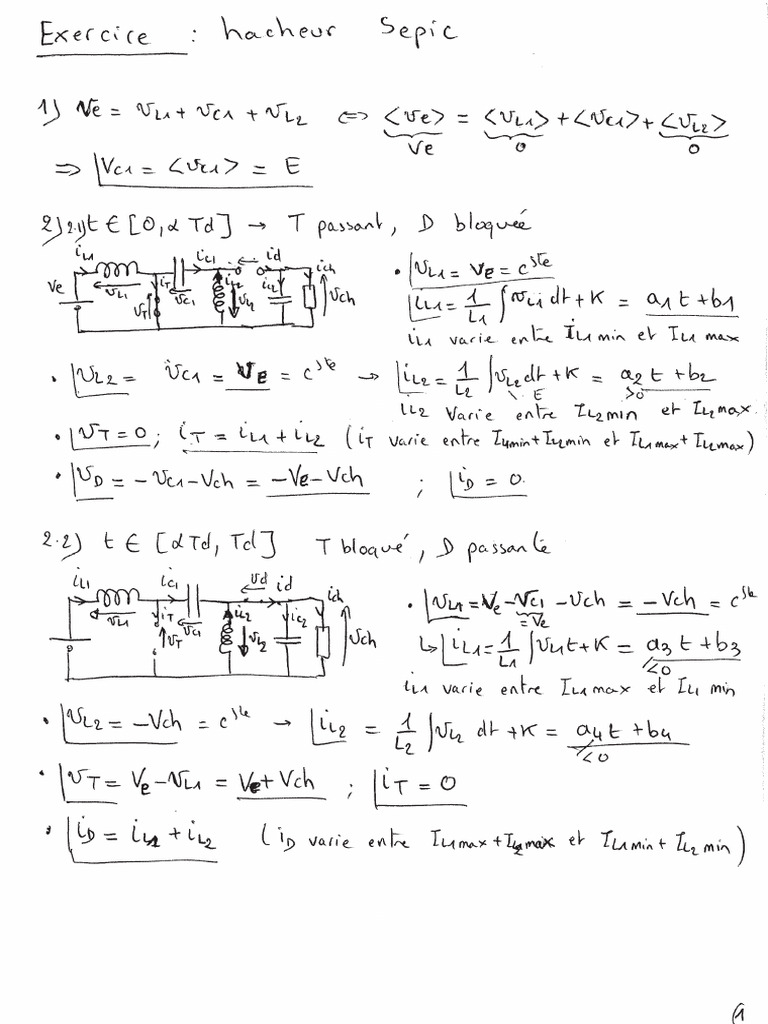 Exercice : hacheur Sepic
1) Ve = vL1 + vC1 + vL2 ⇔ <ve> = <vL1> + <vC1> + <vL2>
Ve 0 0
⇒ VC1 = <vC1> = E
2) 2.1) t ∈ [0, αTd] → T passant, D bloquée
iL1 iC1 id ich
Ve vL1 iT vC1 iL2 iC2
vT vL2 Vch
• vL1 = Ve = cste
iL1 = 1/L1 ∫vL1 dt + K = a1t + b1
iL1 varie entre IL1min et IL1max
• vL2 = vC1 = VE = cste → iL2 = 1/L2 ∫vL2 dt + K = a2t + b2
E >0
iL2 varie entre IL2min et IL2max.
• vT = 0 ; iT = iL1 + iL2 (iT varie entre IL1min + IL2min et IL1max + IL2max)
• vD = -vC1 - Vch = -Ve - Vch ; iD = 0.
2.2) t ∈ [αTd, Td] T bloqué, D passante
iL1 iC1 vd id ich
vL1 iT vC1 iL2 iC2
vT vL2 Vch
• vL1 = Ve - VC1 - Vch = -Vch = cste
= Ve
↳ iL1 = 1/L1 ∫vL1 t + K = a3t + b3
<0
iL1 varie entre IL1max et IL1 min
• vL2 = -Vch = cste → iL2 = 1/L2 ∫vL2 dt + K = a4t + b4
<0
• vT = Ve - vL1 = Ve + Vch ; iT = 0
• iD = iL1 + iL2 (iD varie entre IL1max + IL2max et IL1min + IL2min)
1